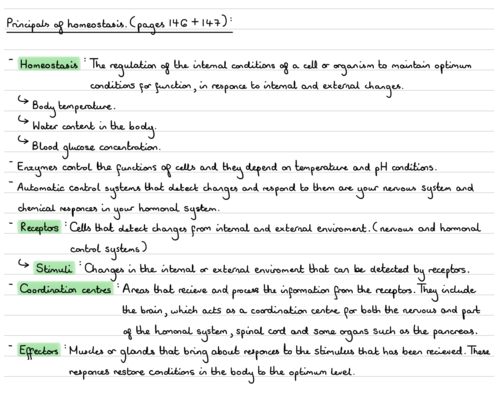 Principals of homeostasis. (pages 146 + 147):
- Homeostasis : The regulation of the internal conditions of a cell or organism to maintain optimum
conditions for function, in responce to internal and external changes.
↳ Body temperature.
↳ Water content in the body.
↳ Blood glucose concentration.
- Enzymes control the functions of cells and they depend on temperature and pH conditions.
- Automatic control systems that detect changes and respond to them are your nervous system and
chemical responces in your hormonal system.
- Receptors : Cells that detect changes from internal and external enviroment. (nervous and hormonal
control systems)
↳ Stimuli : Changes in the internal or external enviroment that can be detected by receptors.
- Coordination centres : Areas that recieve and process the information from the receptors. They include
the brain, which acts as a coordination centre for both the nervous and part
of the hormonal system, spinal cord and some organs such as the pancreas.
- Effectors : Muscles or glands that bring about responces to the stimulus that has been recieved. These
responces restore conditions in the body to the optimum level.